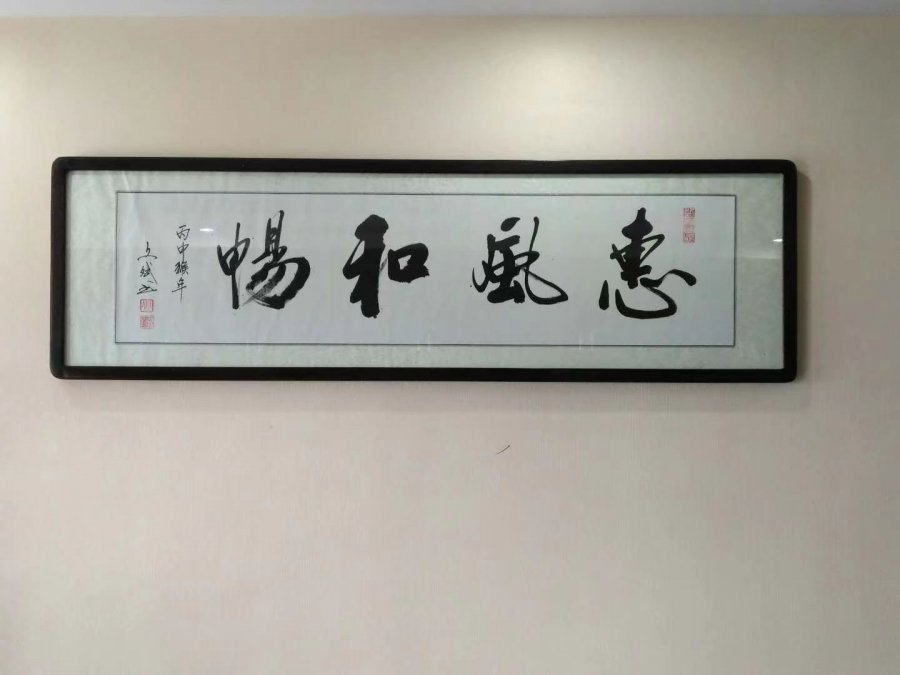 惠風和暢
丙申猴年
文斌书